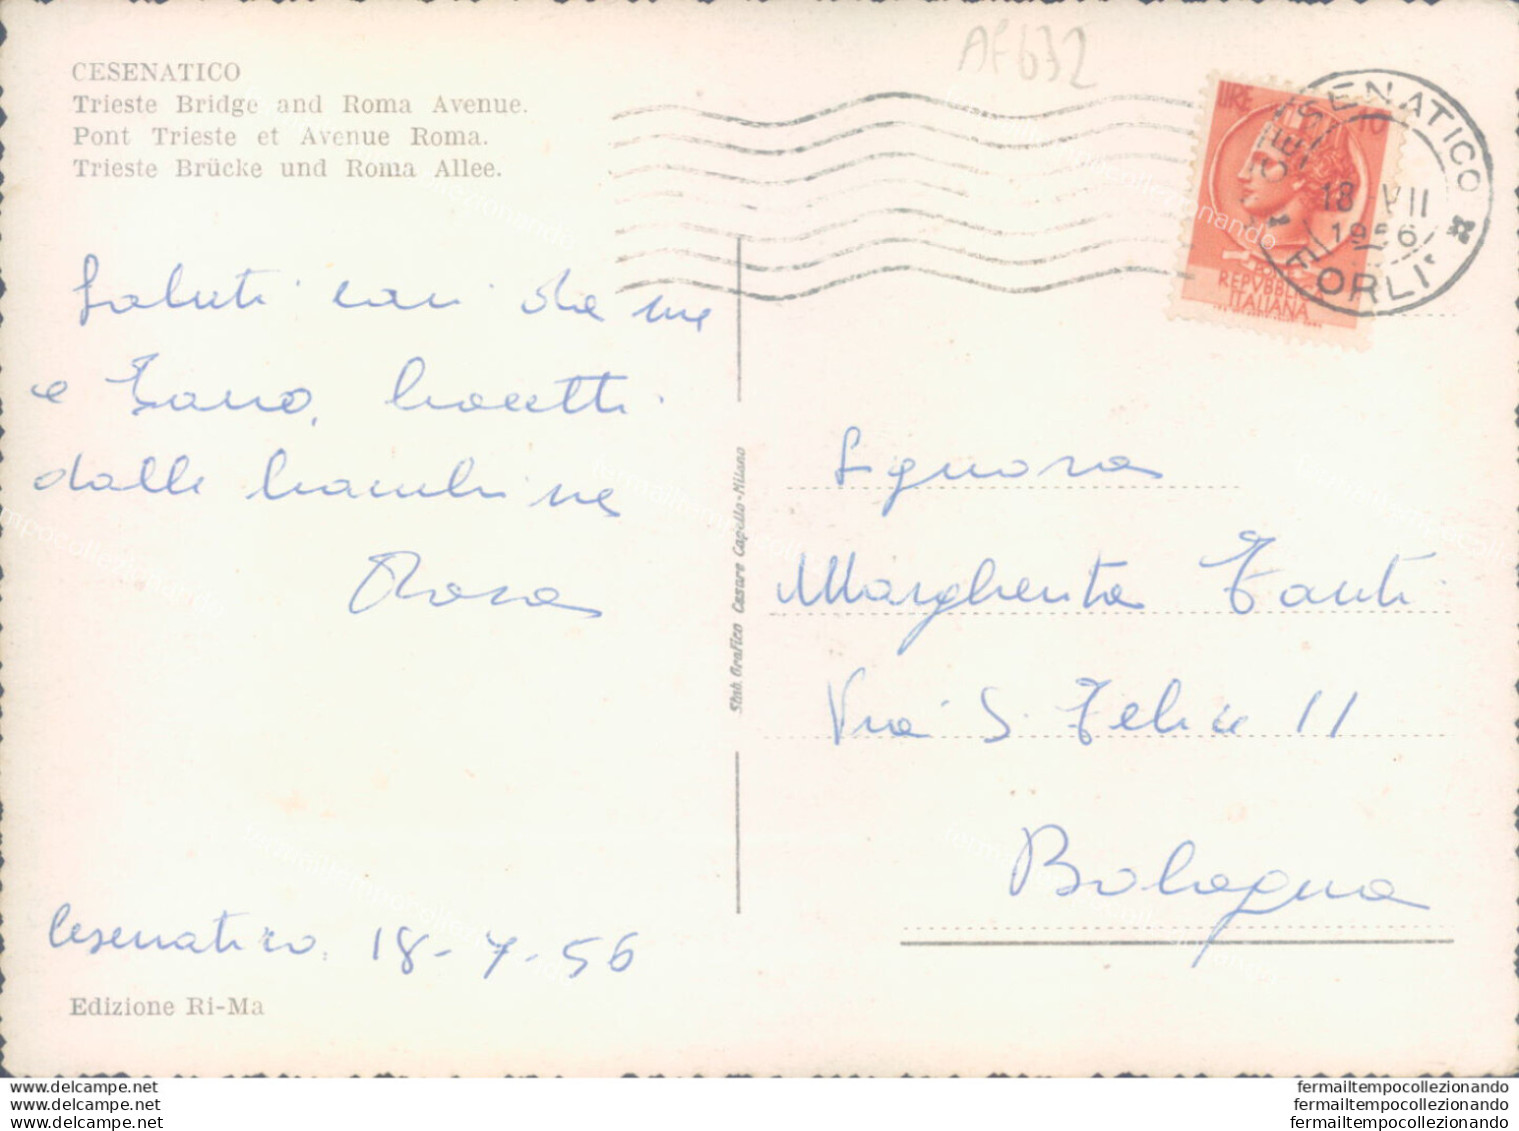 AF632
CESENATICO
Trieste Bridge and Roma Avenue.
Pont Trieste et Avenue Roma.
Trieste Brücke und Roma Allee.
LIRE 10
POSTE
REPVBBLICA
ITALIANA
CESENATICO
18 VII
1956
FORLI'
Saluti cari da me
e Zano, bacetti
dalle bambine
Rosa
Signora
Margherita Zanti
Via S. Felice 11
Bologna
Stab. Grafico Cesare Capello - Milano
Cesenatico 18-7-56
Edizione Ri-Ma
www.delcampe.net
www.delcampe.net
www.delcampe.net
fermailtempocollezionando
fermailtempocollezionando
fermailtempocollezionando